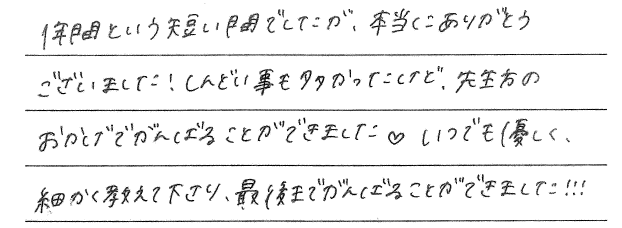 1年間という短い間でしたが、本当にありがとう
ございました！しんどい事も多かったけど、先生方の
おかげでがんばることができました♡いつでも優しく、
細かく教えて下さり、最後までがんばることができました!!!